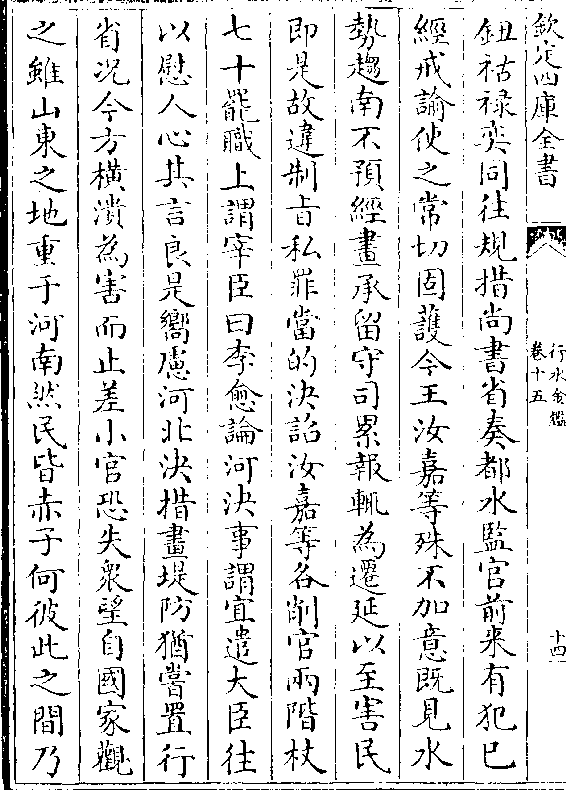 欽定四庫全書
行水金鑑
卷十五
十四
鈕祜祿奕同往規措尚書省奏都水監官前來有犯已
經戒諭使之常切固護今王汝嘉等殊不加意既見水
勢趨南不預經畫承留守司累報輒為遷延以至害民
即是故違制旨私罪當的決詔汝嘉等各削官兩階杖
七十罷職上謂宰臣曰李愈論河決事謂宜遣大臣往
以慰人心其言良是嚮慮河北決措畫堤防猶嘗置行
省况今方橫潰為害而止差小官恐失衆望自國家觀
之雖山東之地重于河南然民皆赤子何彼此之間乃